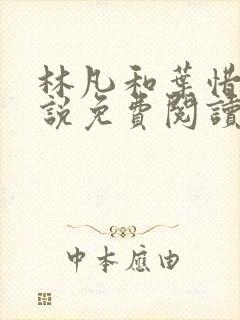 林凡和葉惜
說免費閱讀
中本應由